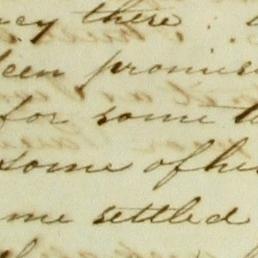 ncy there
been promise
for some
some of he
me settled